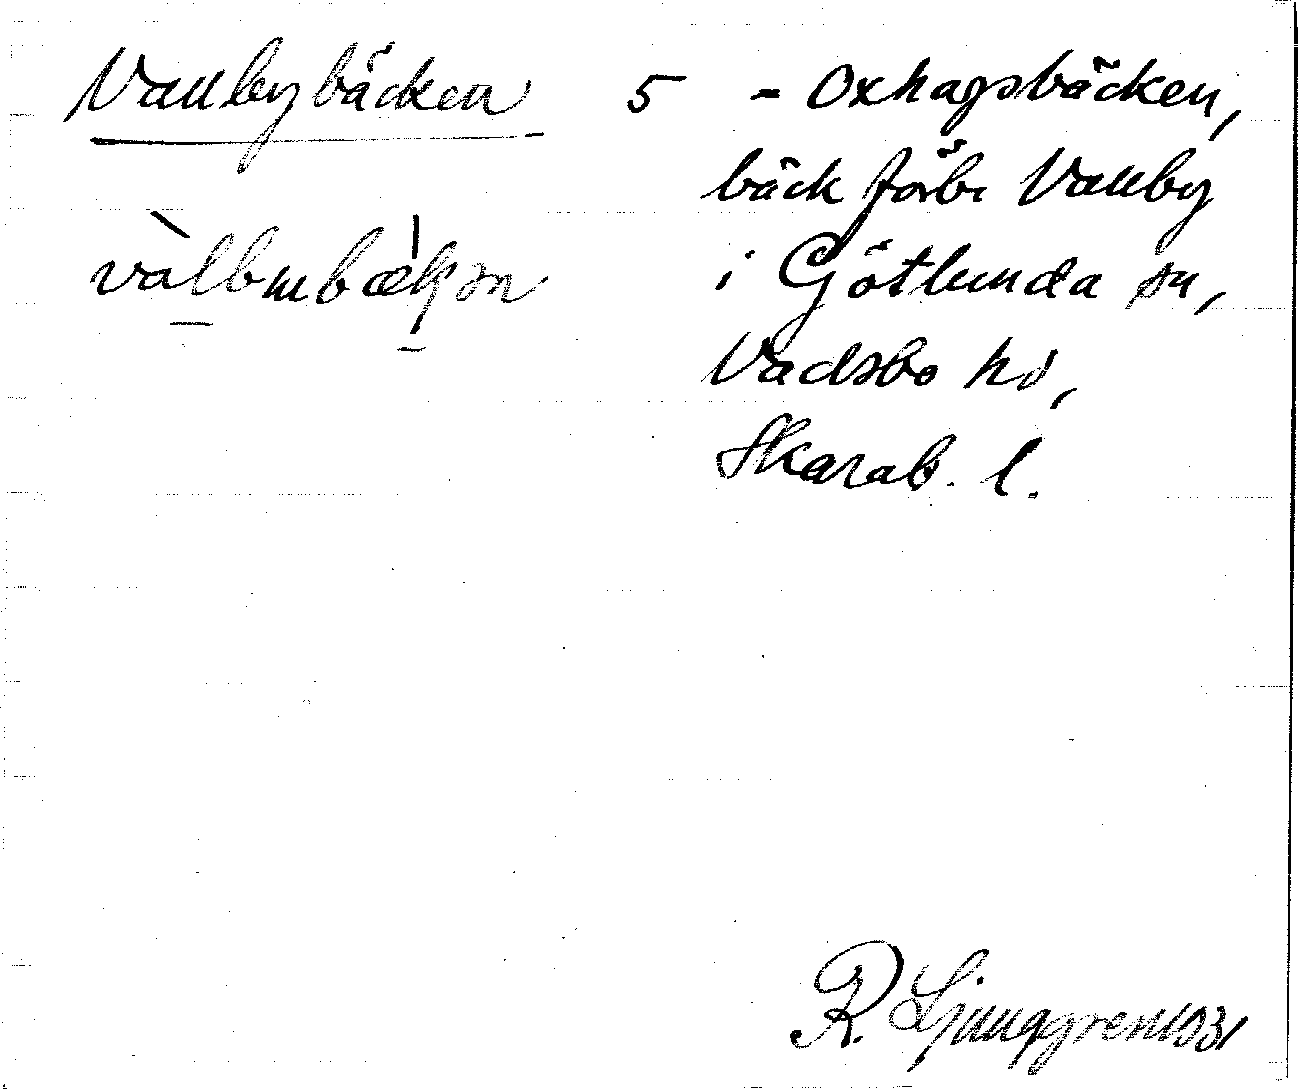 Vallbybäcken 5 - Oxhagsbäcken,
bäck förbi Vallby
i Götlunda sn,
Vadsbo hd,
Skarab. l.
R. Ljunggren 1931